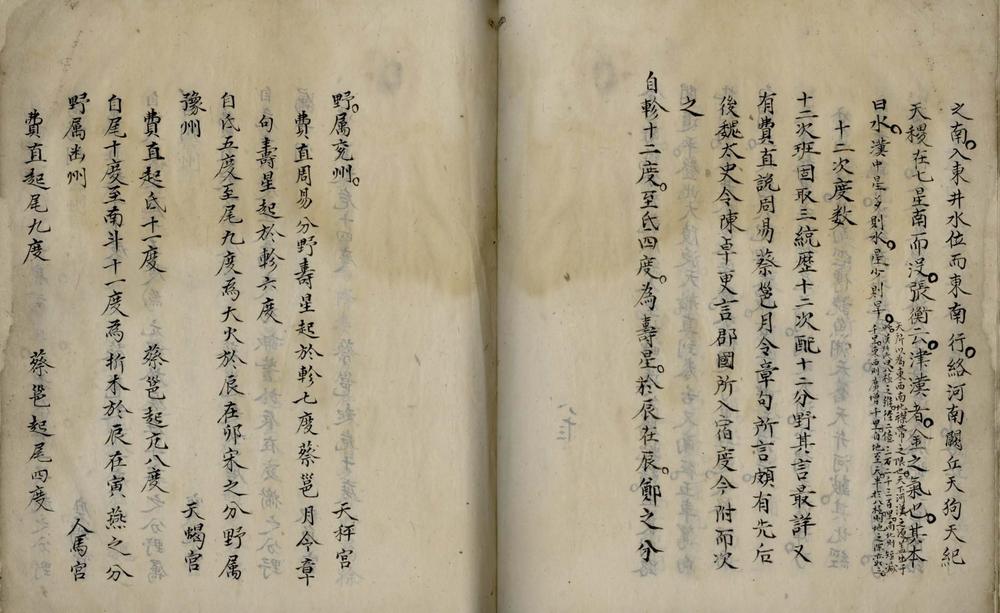 之南。入東井水位而東南行。絡河南闕丘天狗天紀
天稷在七星南而没。張衡云。津漢者。金之氣也。其本
曰水。漢中星多則水。星少則旱。
十二次度數
十二次班固取三統歷十二次配十二分野其言最詳又
有費直説周易蔡邕月令章句所言頗有先后
後魏太史令陳卓更言郡國所入宿度今附而次
之
自軫十二度。至氐四度。為壽星。於辰在辰。鄭之分
野。属兖州。 天秤宮
費直周易分野壽星起於軫七度蔡邕月令章
句壽星起於軫六度
自氐五度至尾九度為大火於辰在卯宋之分野属
豫州 天蝎宮
費直起氐十一度 蔡邕起亢八度
自尾十度至南斗十一度為析木於辰在寅燕之分
野属幽州 人馬宮
費直起尾九度 蔡邕起尾四度